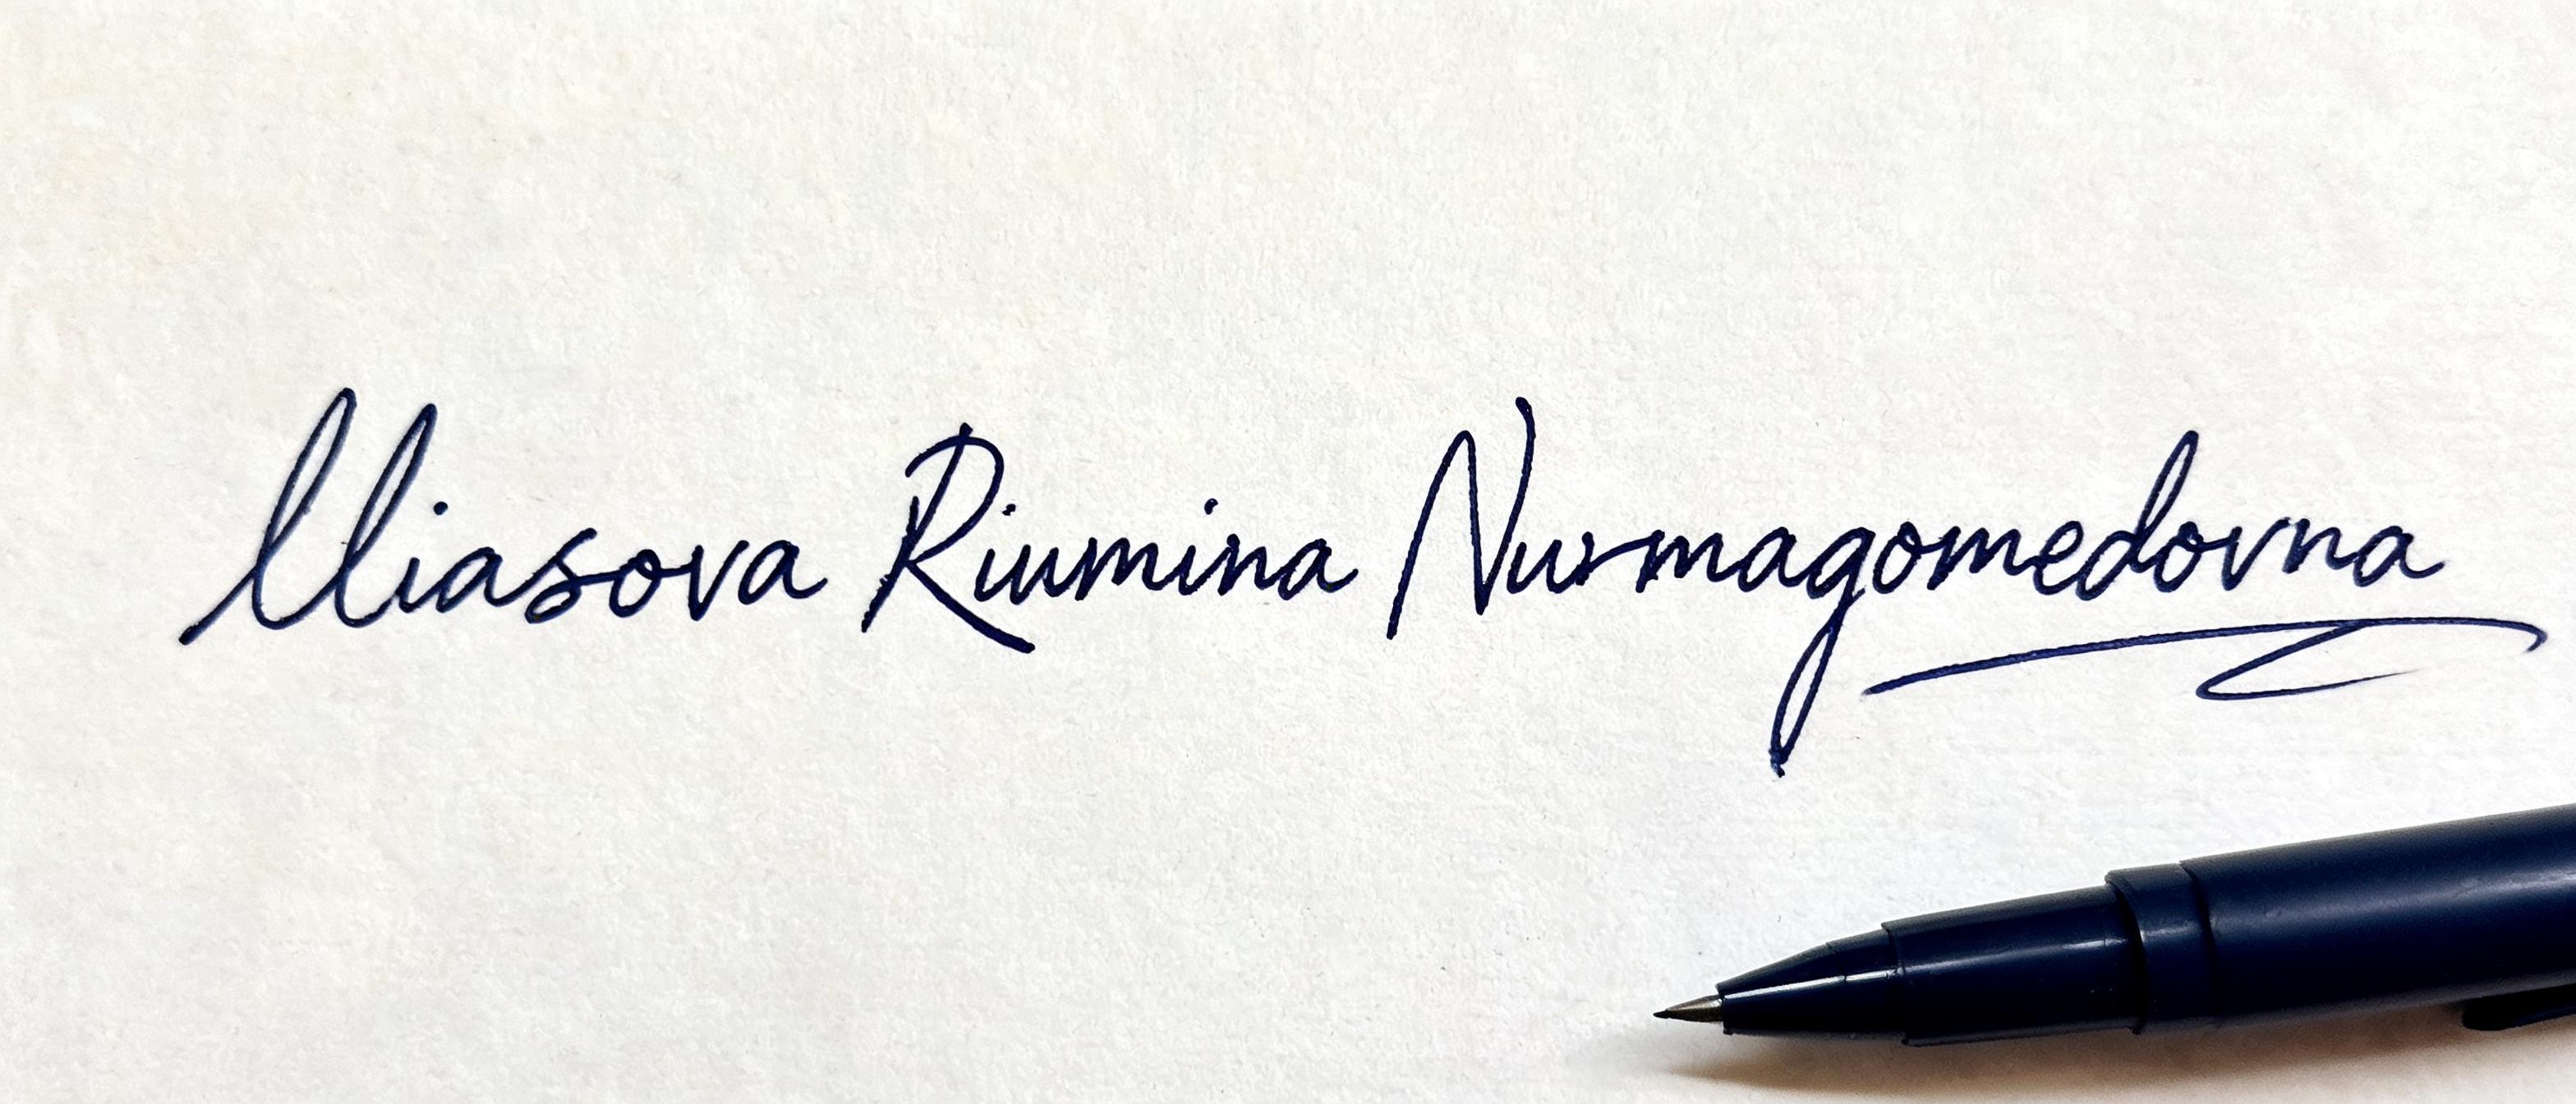 Iliasova Riumina Nurmagomedovna